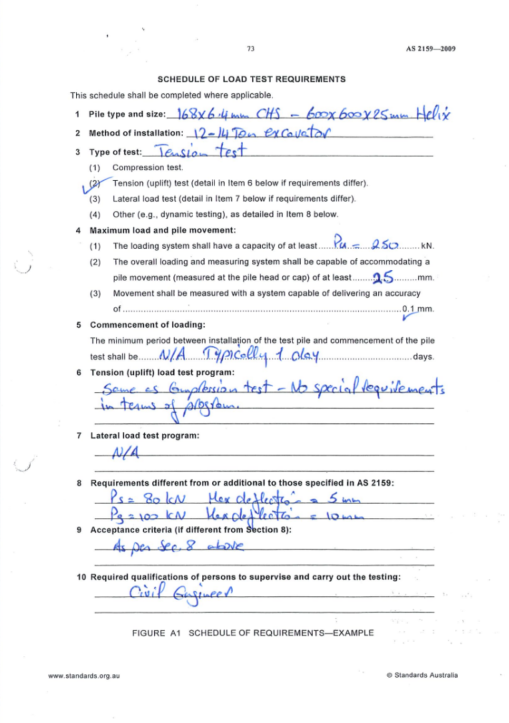 73
AS 2159—2009
SCHEDULE OF LOAD TEST REQUIREMENTS
This schedule shall be completed where applicable.
1 Pile type and size: 168x6.4mm CHS - 600x600x25mm Helix
2 Method of installation: 12-14 Ton excavator
3 Type of test: Tension test
(1) Compression test.
(2) Tension (uplift) test (detail in Item 6 below if requirements differ).
(3) Lateral load test (detail in Item 7 below if requirements differ).
(4) Other (e.g., dynamic testing), as detailed in Item 8 below.
4 Maximum load and pile movement:
(1) The loading system shall have a capacity of at least.....Pu = 250.......kN.
(2) The overall loading and measuring system shall be capable of accommodating a
pile movement (measured at the pile head or cap) of at least.......25.....mm.
(3) Movement shall be measured with a system capable of delivering an accuracy
of...............0.1 mm.
5 Commencement of loading:
The minimum period between installation of the test pile and commencement of the pile
test shall be......N/A Typically 1 day.......days.
6 Tension (uplift) load test program:
Same as Compression test - No special requirements
in terms of program.
7 Lateral load test program:
N/A
8 Requirements different from or additional to those specified in AS 2159:
Ps = 80 kN Max deflection = 5 mm
Pg = 100 kN Max deflection = 10mm
9 Acceptance criteria (if different from Section 8):
As per Sec. 8 above
10 Required qualifications of persons to supervise and carry out the testing:
Civil Engineer
FIGURE A1 SCHEDULE OF REQUIREMENTS—EXAMPLE
www.standards.org.au
© Standards Australia